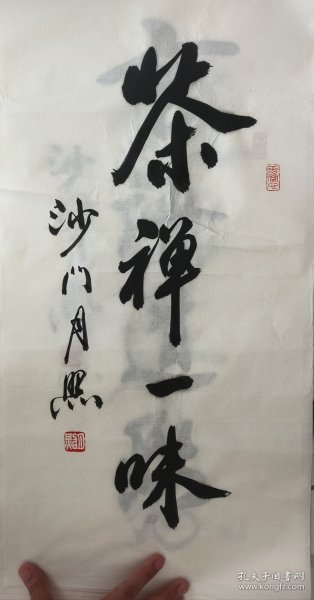 茶禅一味
沙门月照
孔夫子旧书网